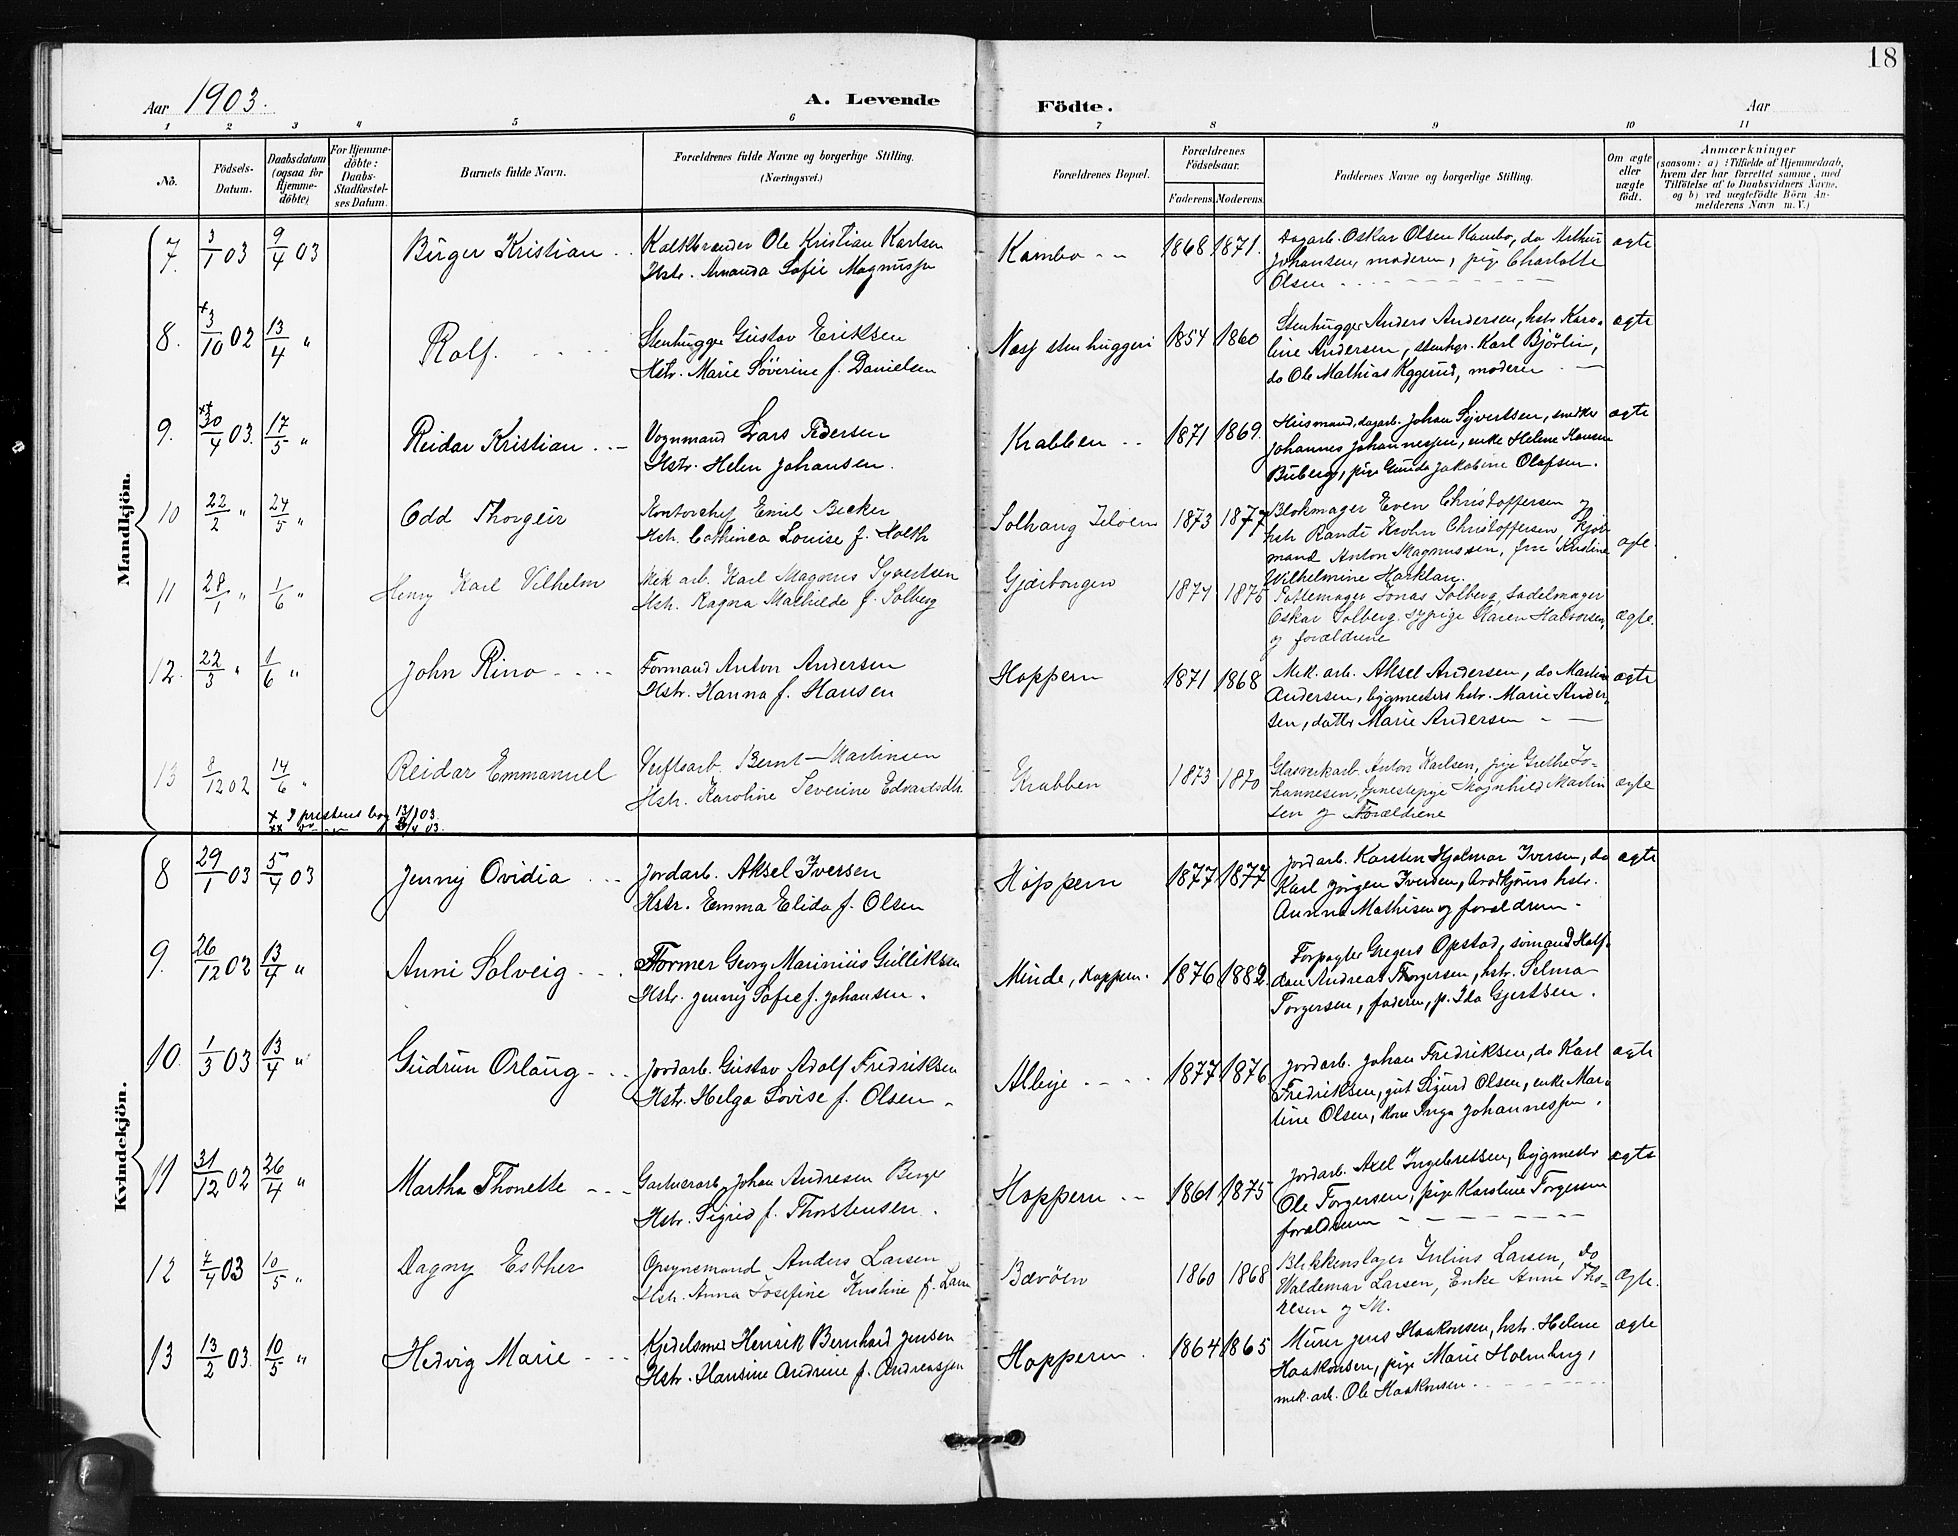 18
Aar 1903.
A. Levende Födte.
Aar
1 2 3 4 5 6 7 8 9 10 11
No.
Födsels-Datum.
Daabsdatum (ogsaa for Hjemmedöbte)
For Hjemmedöbte: Daabs-Stadfæstelses Datum.
Barnets fulde Navn.
Forældrenes fulde Navne og borgerlige Stilling.
(Næringsvei.)
Forældrenes Bopæl.
Forældrenes Födselsaar.
Faderens. Moderens.
Faddernes Navne og borgerlige Stilling.
Om ægte eller uægte födt.
Anmærkninger
(saasom: a) : Tilfælde af Hjemmedaab,
hvem der har forrettet samme, med
Tilföielse af to Daabsvidners Navne,
og b) ved uægtefödte Börn An-
melderens Navn m. V.)
Mandkjön.
7. 3/1 03 9/4 03 Birger Kristian
Kalkbrænder Ole Kristian Karlsen
Hstr. Amanda Sofie Magnussen
Kambo 1868 1871.
Dagarb. Oskar Olsen Kambo, do Arthur
Johansen, moderen, pige Charlotte
Olsen
ægte
8. x 3/10 02 13/4 " Rolf.
Stenhugger Gustav Eriksen
Hstr. Marie Söverine f. Danielsen
Næs stenhuggeri 1854 1860
Stenhugger Anders Andersen, hstr. Karo-
line Andersen, stenhgr. Karl Björlin,
do Ole Mathias Kggerud, moderen
ægte
9. xx 30/4 03. 17/5 " Reidar Kristian
Vognmand Lars Pedersen
Hstr. Helen Johansen.
Krabben 1871 1869.
Husmand, dagarb. Johan Syvertsen, snedker
Johannes Johannessen, enke Helene Hansen
Buberg, pige Gunda Jakobine Olafsen.
ægte
10 22/2 " 24/5 " Odd Thorgeir
Kontorchef Emil Becker
Hstr. Cathinca Louise f. Holth
Solhaug Jeløen 1873 1877
Blokmager Even Christoffersen og
hstr Randi Krohn Christoffersen, Kjøb-
mand Anton Magnussen, fru Kristine
Wilhelmine Harklau.
ægte.
11 28/1 " 1/6 " Henry Karl Vilhelm
Mek arb. Karl Magnus Syvertsen
Hstr. Ragna Mathilde f. Solberg
Gjærbongen 1877 1875
Pottemager Jonas Solberg, Sadelmager
Oskar Solberg. sypige Karen Halvorsen,
og forældrene
ægte.
12. 22/3 " 1/6 " John Rino
Formand Anton Andersen
Hstr. Hanna f. Hansen
Hoppern 1871 1868
Mek. arb. Aksel Andersen, do Martin
Andersen, bygmesters hstr. Marie Ander-
sen, datter Marie Andersen
ægte
13 8/12 02 14/6 " Reidar Emmanuel
Verftsarb. Bernt Martinsen
Hstr. Karoline Severine Edvardsdtr.
Krabben 1873 1870
Glasverkarb. Anton Karlsen, pige Grethe Jo-
hannesen, tjenestepige Magnhild Martin
sen og Forældrene
ægte
x I prestens bog 13/1 03.
Kvindekjön.
8 29/1 03 5/4 03 Jenny Ovidia
Jordarb. Aksel Iversen
Hstr. Emma Elida f. Olsen
Hoppern 1877 1877
Jordarb. Karsten Hjalmar Iversen, do
Karl Jörgen Iversen, hstr.
Anna Mathisen og forældrene.
ægte
9. 26/12 02 13/4 " Anni Solveig
Former Georg Marinius Gulliksen
Hstr. Jenny Sofie f. Johansen.
Minde, Hoppern. 1876 1882.
Forpagter Gregers Opstad, sömand Half-
dan Andreas Torgersen, hstr. Selma
Torgersen, faderen, p. Ida Gjertsen.
10. 1/3 03 13/4 " Gudrun Orlaug
Jordarb. Gustav Adolf Fredriksen
Hstr. Helga Lovise f. Olsen
Alleye 1877 1876
Jordarb. Johan Fredriksen, do Karl
Fredriksen, gut Sigurd Olsen, enke Mar-
tine Olsen, kone Inga Johannessen.
ægte
11 31/12 02 26/4 " Martha Thonette
Gartnerarb. Johan Andresen Berge
Hstr. Sigrid f. Thorstensen.
Hoppern 1861 1875
Jordarb. Axel Ingebretsen, bygmestr
Ole Torgersen, pige Karoline Torgersen
forældrene
ægte
12 7/4 03 10/5 " Dagny Esther
Opsynsmand Anders Larsen
Hstr. Anna Josefine Kristine f. Larsen
Bævöen 1860 1868
Blikkenslager Julius Larsen, do
Waldemar Larsen, Enke Anne Tho-
resen og M.
ægte.
13 13/2 03. 10/5 " Hedvig Marie
Kjedelsmed Henrik Bernhard Jensen
Hstr. Hansine Andrine f. Andreassen
Hoppern. 1864 1865
Murer Jens Haakonsen, hstr. Helene
Haakonsen, pige Marie Holmberg,
mek. arb. Ole Haakonsen.
ægte